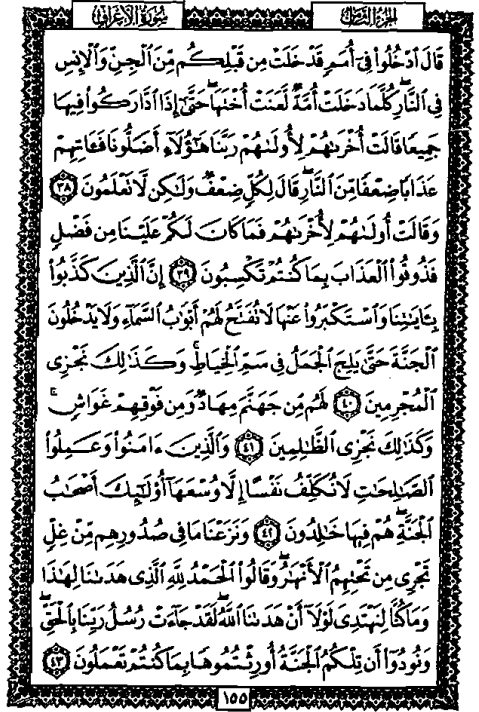 سُورَةُ الأَعْرَافِ الجُزْءُ الثَّامِنُ
قَالَ ٱدْخُلُوا۟ فِىٓ أُمَمٍ قَدْ خَلَتْ مِن قَبْلِكُم مِّنَ ٱلْجِنِّ وَٱلْإِنسِ
فِى ٱلنَّارِ كُلَّمَا دَخَلَتْ أُمَّةٌ لَّعَنَتْ أُخْتَهَا حَتَّىٰٓ إِذَا ٱدَّارَكُوا۟ فِيهَا
جَمِيعًا قَالَتْ أُخْرَىٰهُمْ لِأُولَىٰهُمْ رَبَّنَا هَـٰٓؤُلَآءِ أَضَلُّونَا فَـَٔاتِهِمْ
عَذَابًا ضِعْفًا مِّنَ ٱلنَّارِ قَالَ لِكُلٍّ ضِعْفٌ وَلَـٰكِن لَّا تَعْلَمُونَ ٣٨
وَقَالَتْ أُولَىٰهُمْ لِأُخْرَىٰهُمْ فَمَا كَانَ لَكُمْ عَلَيْنَا مِن فَضْلٍ
فَذُوقُوا۟ ٱلْعَذَابَ بِمَا كُنتُمْ تَكْسِبُونَ ٣٩ إِنَّ ٱلَّذِينَ كَذَّبُوا۟
بِـَٔايَـٰتِنَا وَٱسْتَكْبَرُوا۟ عَنْهَا لَا تُفَتَّحُ لَهُمْ أَبْوَٰبُ ٱلسَّمَآءِ وَلَا يَدْخُلُونَ
ٱلْجَنَّةَ حَتَّىٰ يَلِجَ ٱلْجَمَلُ فِى سَمِّ ٱلْخِيَاطِ ۚ وَكَذَٰلِكَ نَجْزِى
ٱلْمُجْرِمِينَ ٤٠ لَهُم مِّن جَهَنَّمَ مِهَادٌ وَمِن فَوْقِهِمْ غَوَاشٍ ۚ
وَكَذَٰلِكَ نَجْزِى ٱلظَّـٰلِمِينَ ٤١ وَٱلَّذِينَ ءَامَنُوا۟ وَعَمِلُوا۟
ٱلصَّـٰلِحَـٰتِ لَا نُكَلِّفُ نَفْسًا إِلَّا وُسْعَهَآ أُو۟لَـٰٓئِكَ أَصْحَـٰبُ
ٱلْجَنَّةِ ۖ هُمْ فِيهَا خَـٰلِدُونَ ٤٢ وَنَزَعْنَا مَا فِى صُدُورِهِم مِّنْ غِلٍّ
تَجْرِى مِن تَحْتِهِمُ ٱلْأَنْهَـٰرُ ۖ وَقَالُوا۟ ٱلْحَمْدُ لِلَّهِ ٱلَّذِى هَدَىٰنَا لِهَـٰذَا
وَمَا كُنَّا لِنَهْتَدِىَ لَوْلَآ أَنْ هَدَىٰنَا ٱللَّهُ ۖ لَقَدْ جَآءَتْ رُسُلُ رَبِّنَا بِٱلْحَقِّ ۖ
وَنُودُوٓا۟ أَن تِلْكُمُ ٱلْجَنَّةُ أُورِثْتُمُوهَا بِمَا كُنتُمْ تَعْمَلُونَ ٤٣
١٥٥